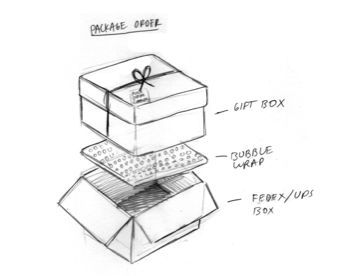 PACKAGE ORDER
GIFT BOX
BUBBLE
WRAP
FEDEX/UPS
BOX